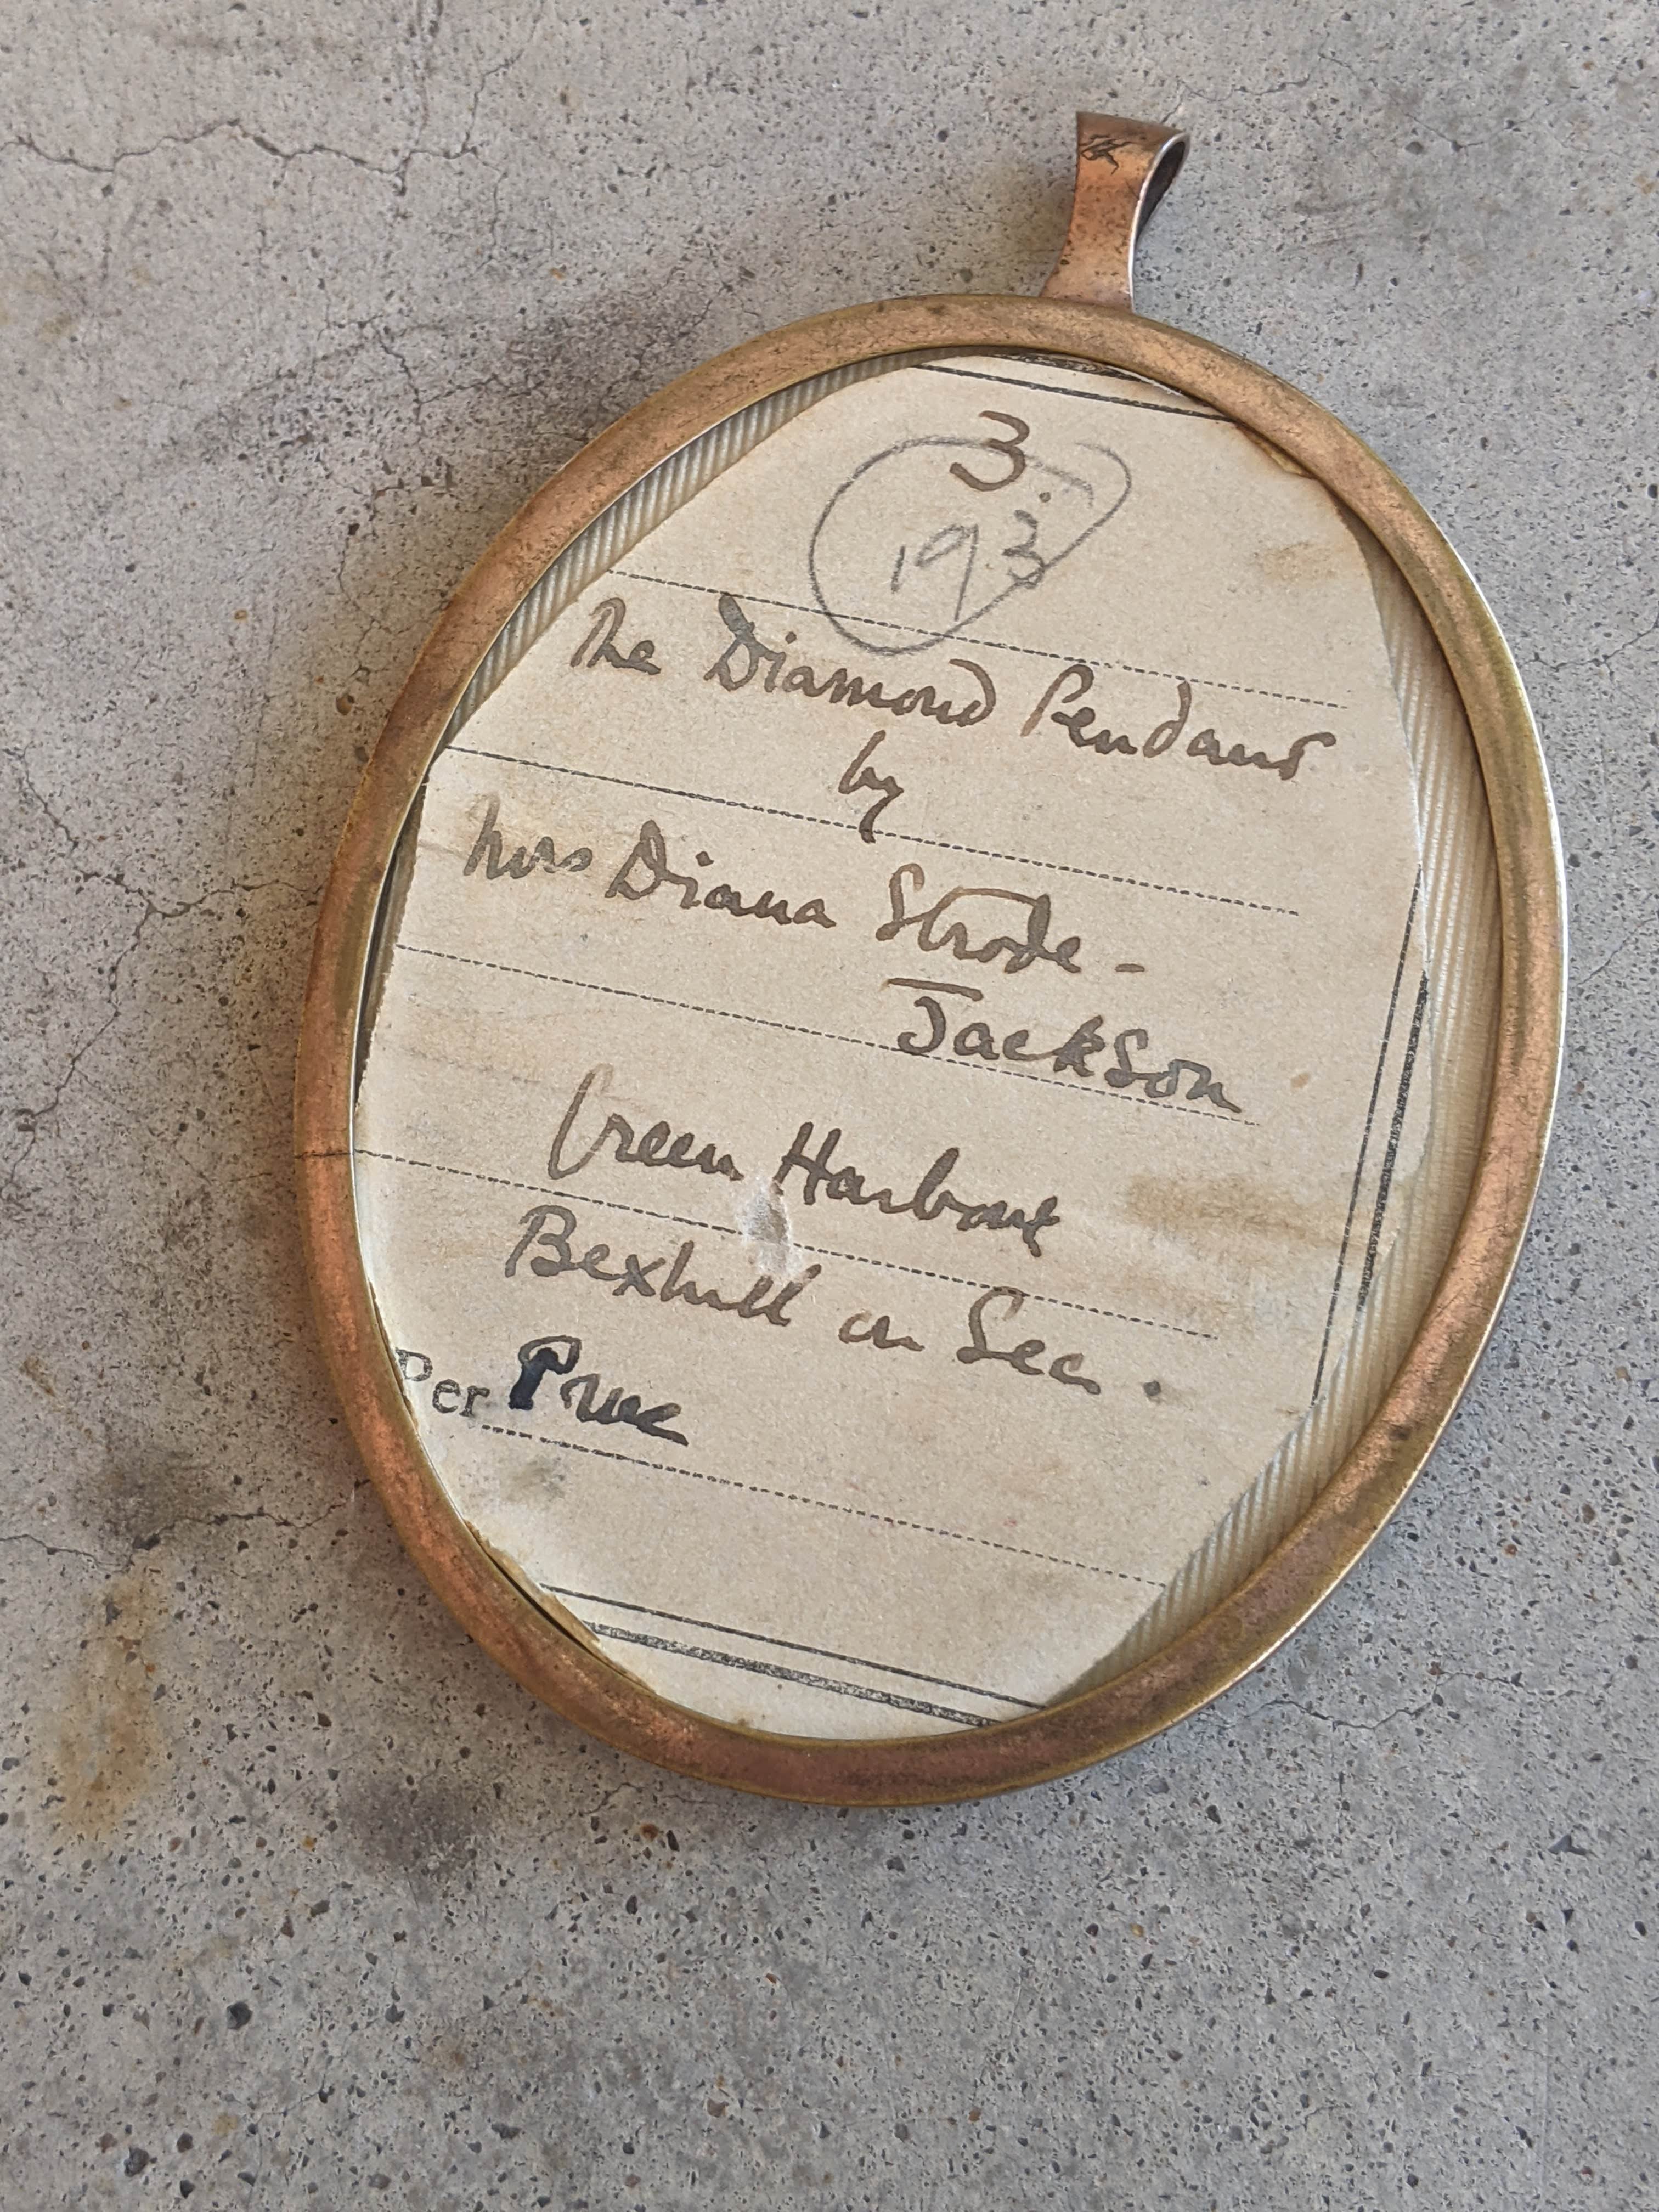 3.
193
The Diamond Pendant
by
Mrs Diana Strode -
Jackson
Green Harbour
Bexhill on Sea.
Per Prue